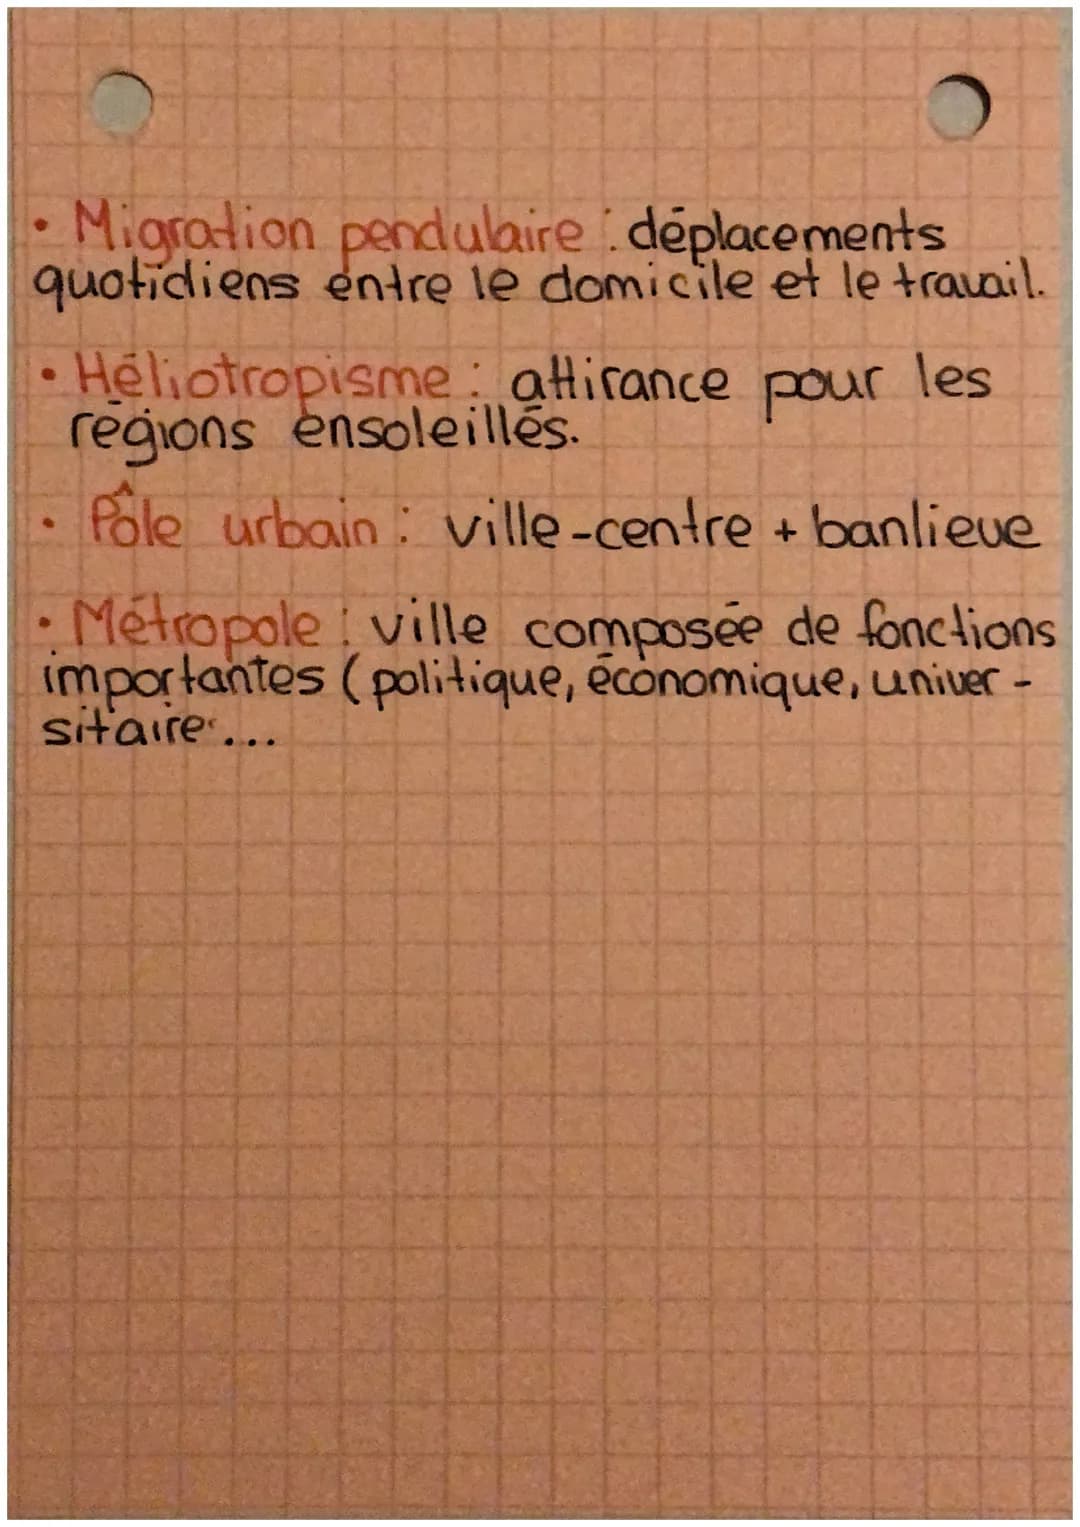 • Migration pendulaire : déplacements
quotidiens entre le domicile et le travail.
• Héliotropisme : attirance pour les
régions ensoleillés.
• Pôle urbain : ville-centre + banlieue
• Métropole : ville composée de fonctions
importantes (politique, économique, univer-
sitaire...